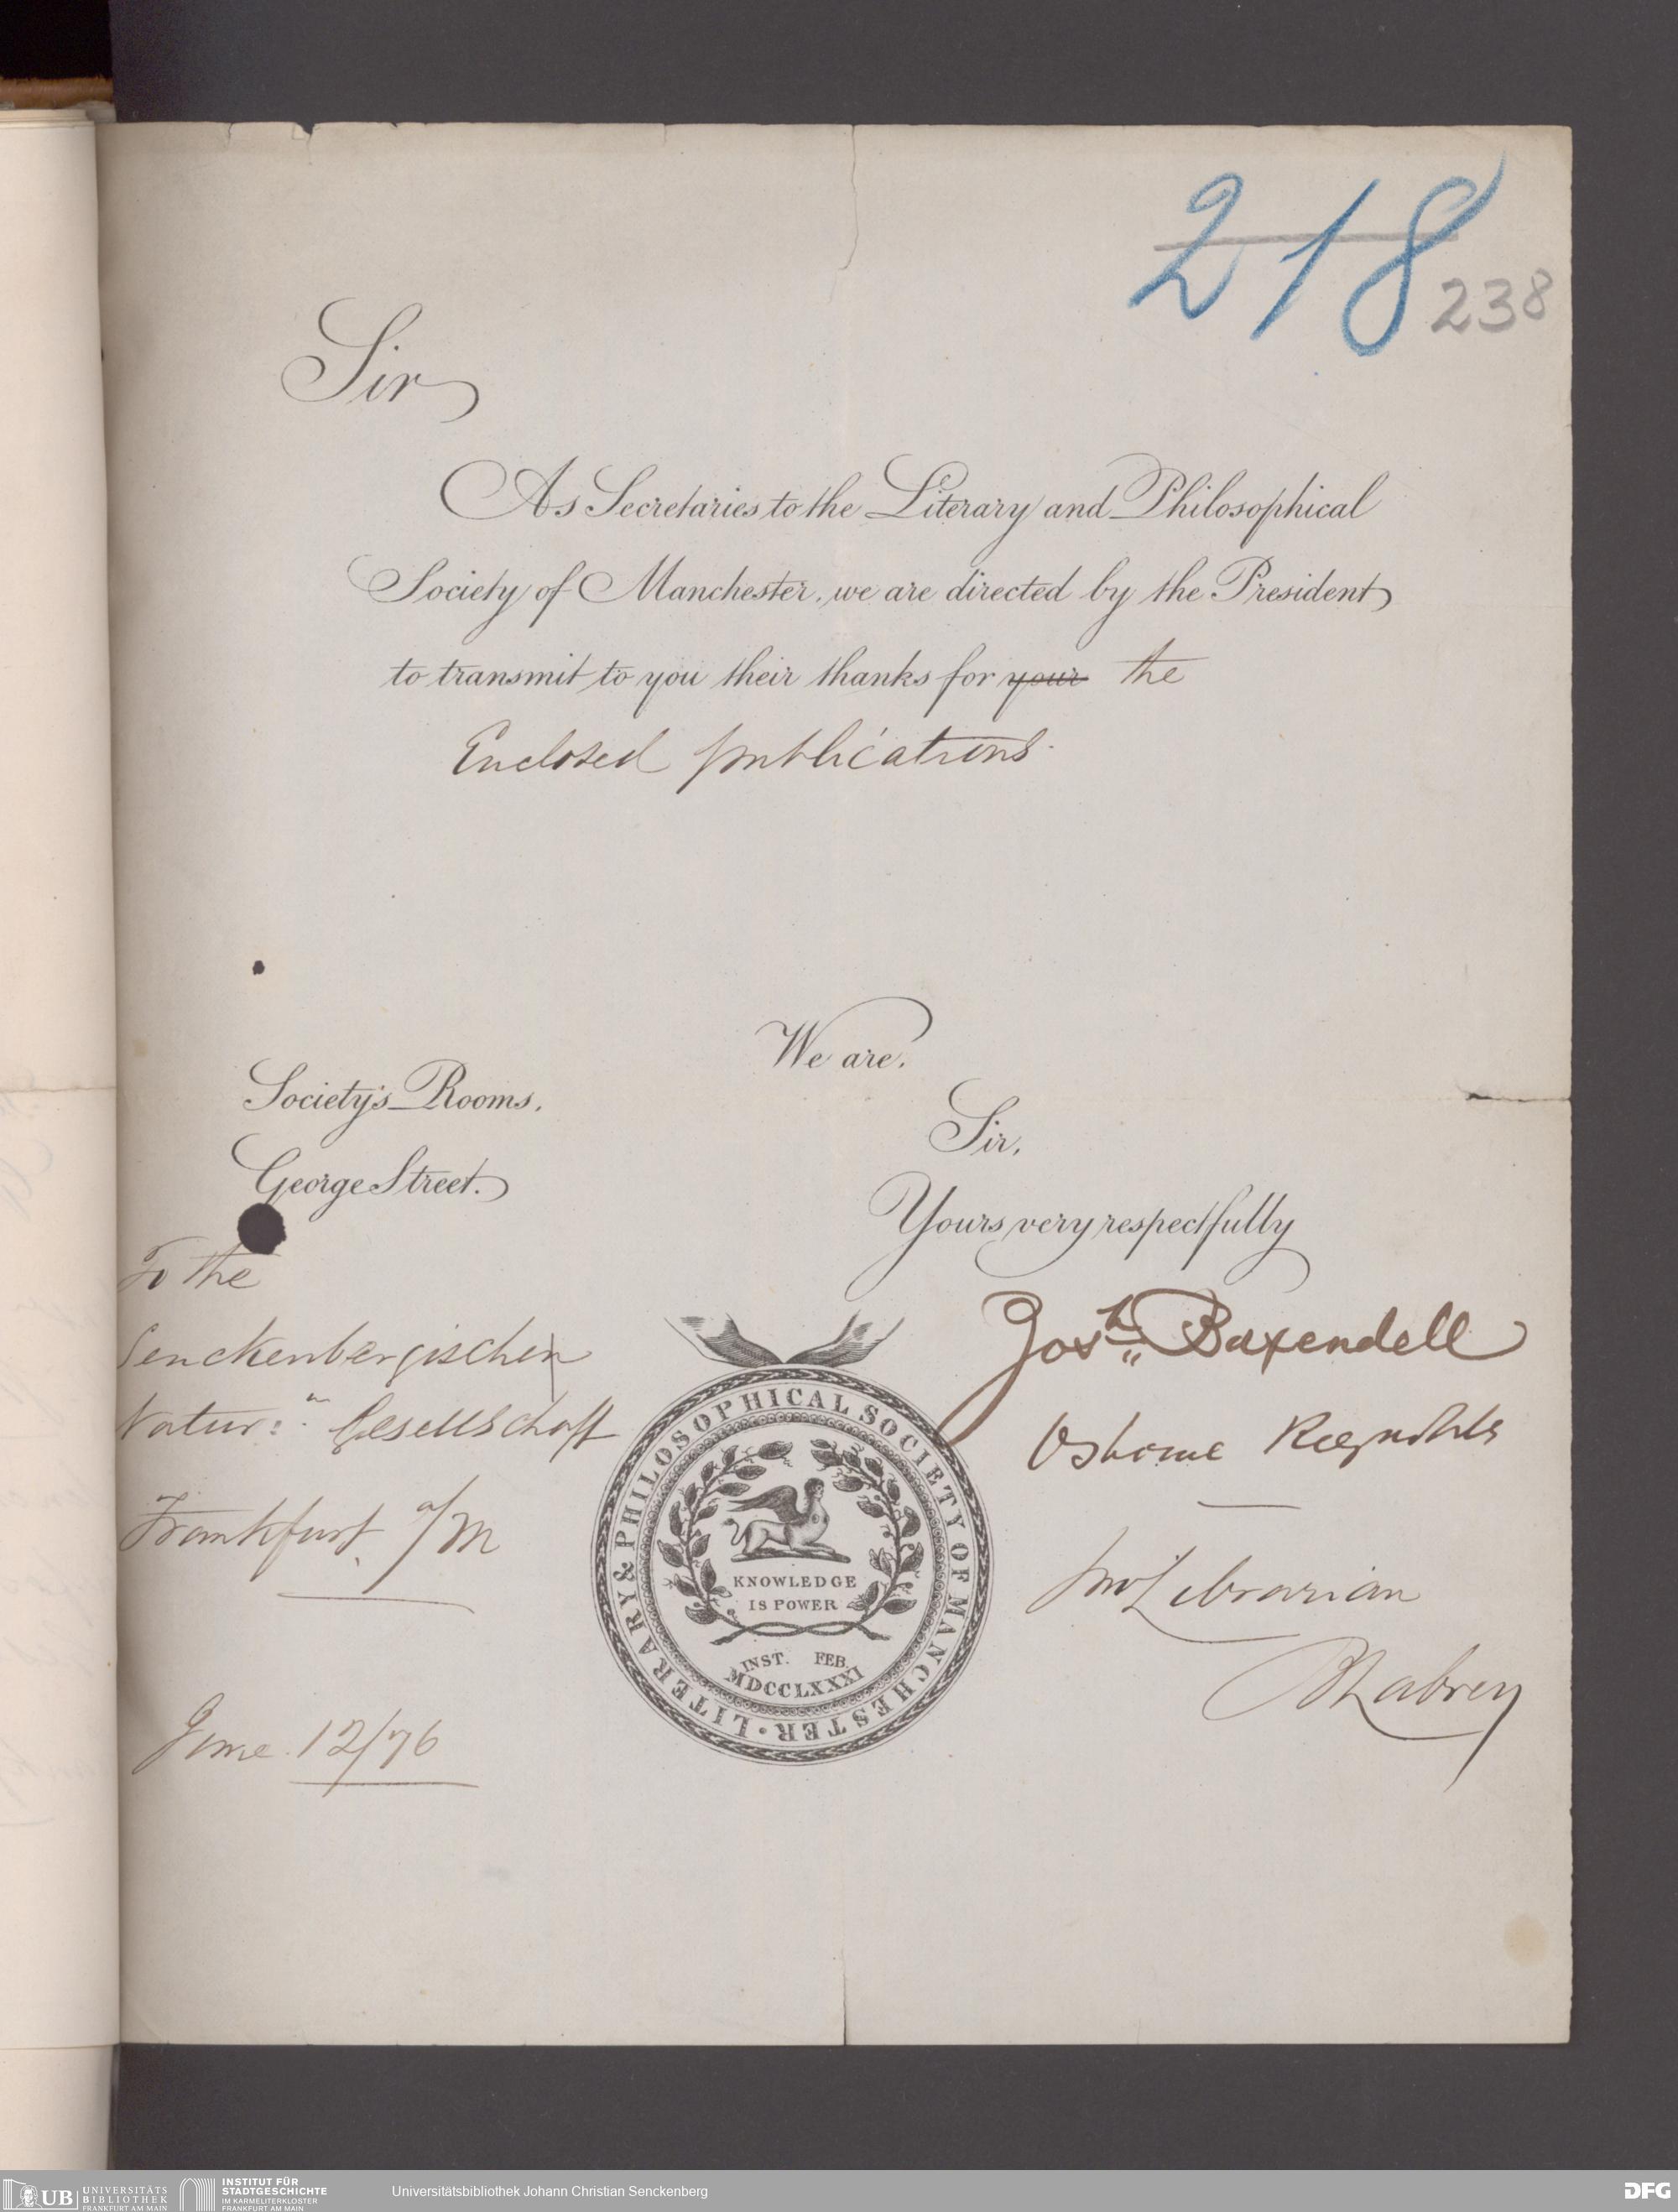 218
238
Sir
As Secretaries to the Literary and Philosophical
Society of Manchester, we are directed by the President
to transmit to you their thanks for your the
Enclosed publications.
We are.
Society's Rooms,
Sir,
George Street.
Yours very respectfully
To the
Josh Baxendell
Senckenbergischen
Natur: Gesellschaft
Osborne Reynolds
Frankfurt a/M
Librarian
June 12/76
LITERARY & PHILOSOPHICAL SOCIETY OF MANCHESTER ·
KNOWLEDGE
IS POWER
INST. FEB.
MDCCLXXXI
UB UNIVERSITÄTS
BIBLIOTHEK
FRANKFURT AM MAIN
INSTITUT FÜR
STADTGESCHICHTE
IM KARMELITERKLOSTER
FRANKFURT AM MAIN
Universitätsbibliothek Johann Christian Senckenberg
DFG